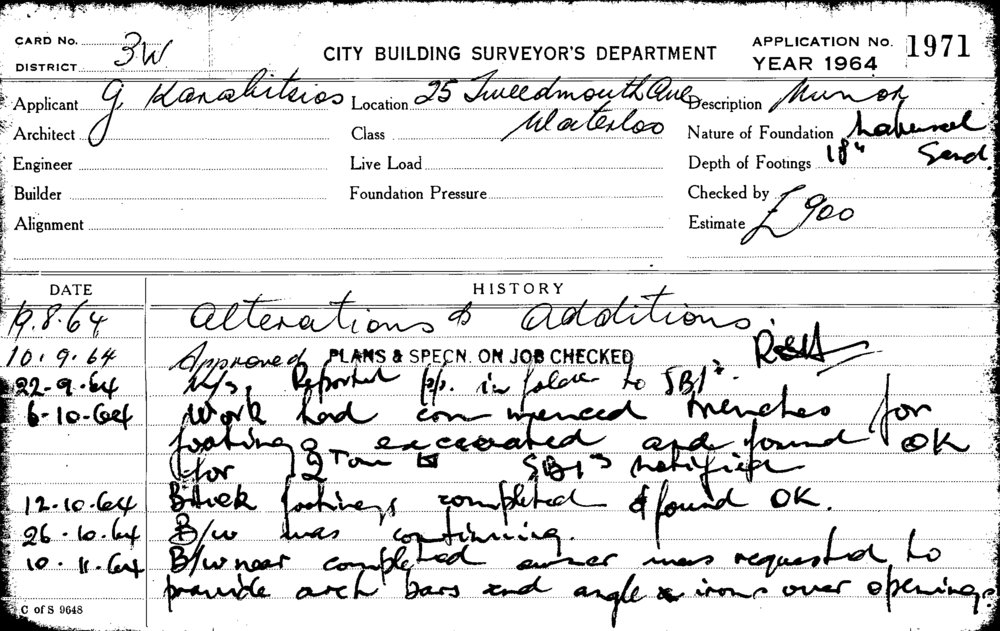 CARD No. 3W
DISTRICT
CITY BUILDING SURVEYOR'S DEPARTMENT
APPLICATION No. 1971
YEAR 1964
Applicant G Karabitsios Location 25 Tweedmouth Ave Description Minor
Architect Class Waterloo Nature of Foundation Natural
Engineer Live Load Depth of Footings 18" Sand.
Builder Foundation Pressure Checked by
Alignment Estimate £900
DATE HISTORY
19.8.64 Alterations & Additions.
10.9.64 Approved PLANS & SPECN. ON JOB CHECKED
22-9-64 Reported pp. in folder to SBI
6-10-64 Work had commenced trenches for
footings excavated and found OK
for 2 Ton SBI notified
12.10.64 Brick footings completed & found OK.
26.10.64 B/w was continuing.
10.11.64 B/w near completed owner was requested to
provide arch bars and angle irons over openings
C of S 9648